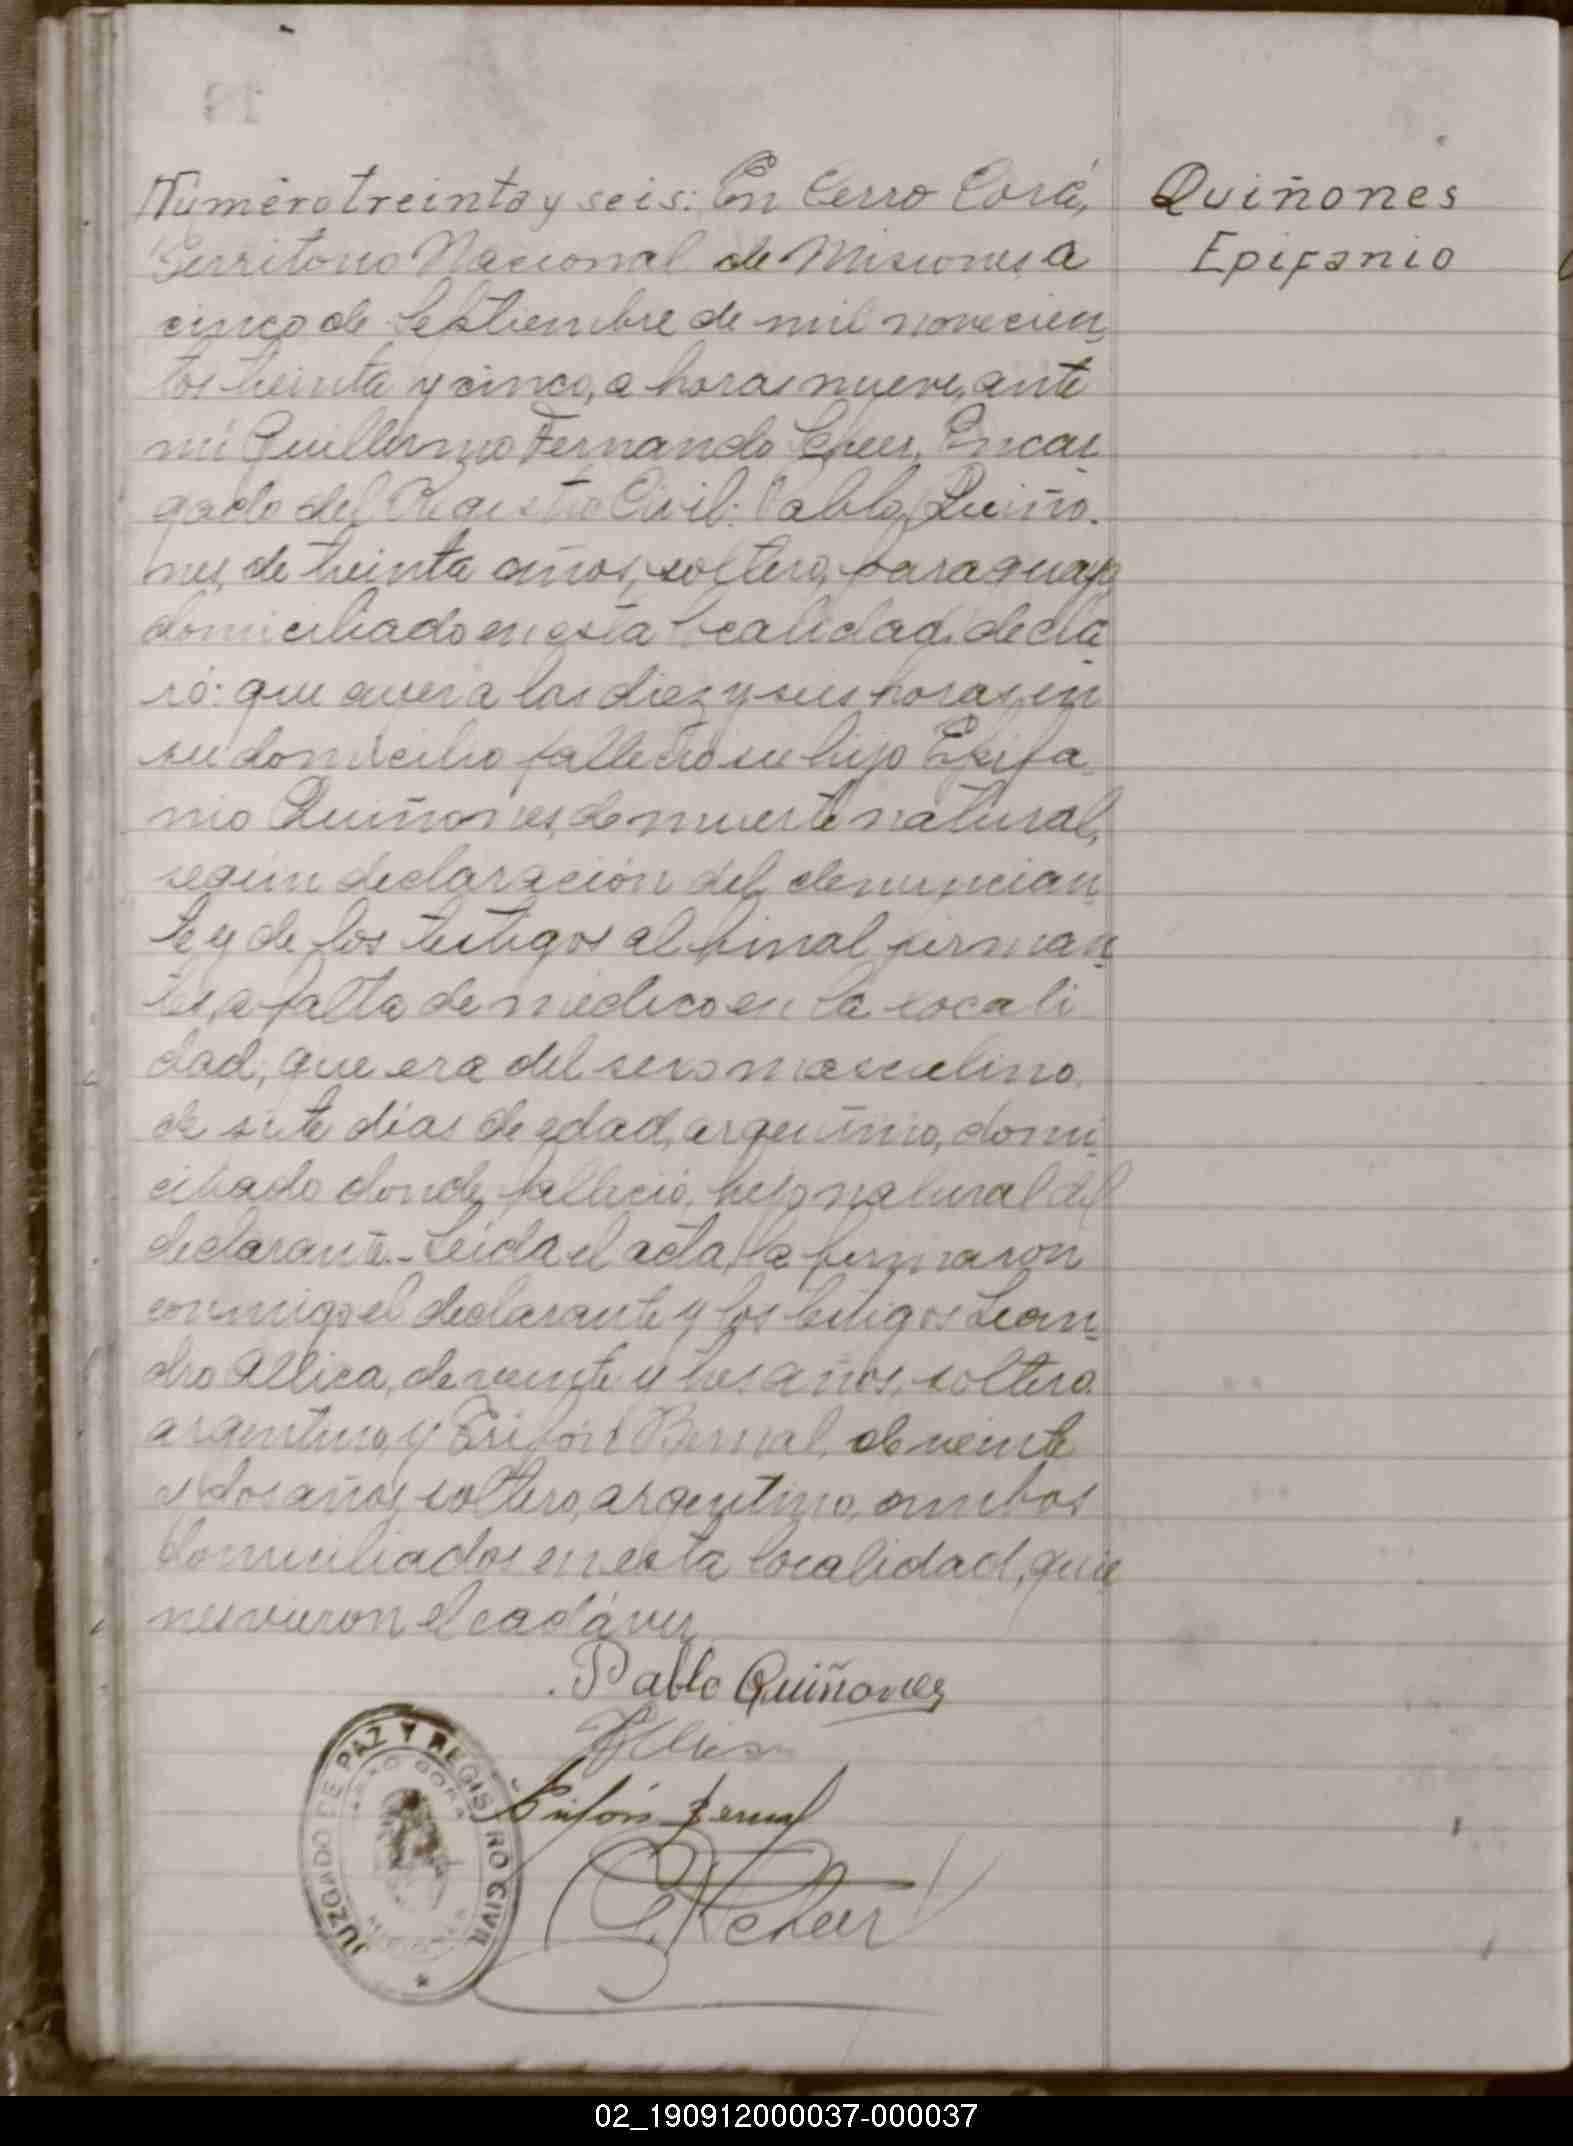 Número treinta y seis: En Cerro Corá,
Territorio Nacional de Misiones, a
cinco de Septiembre de mil novecien
tos treinta y cinco, a horas nueve, ante
mí Guillermo Fernando Scheer, Encar
gado del Registro Civil: Pablo Quiño-
nes, de treinta años, soltero, paraguayo
domiciliado en esta localidad, decla
ró: que ayer a las diez y seis horas, en
su domicilio falleció su hijo Epifa
nio Quiñones, de muerte natural,
según declaración del denuncian
te y de los testigos al final firman
tes, a falta de médico en la locali
dad; que era del sexo masculino,
de siete días de edad, argentino, domi
ciliado donde falleció, hijo natural del
declarante.- Leída el acta, la firmaron
conmigo el declarante y los testigos Lean
dro Allica, de veinte y tres años, soltero,
argentino, y Trifón Bernal, de veinte
y dos años, soltero, argentino, ambos
domiciliados en esta localidad, quie
nes vieron el cadáver
Pablo Quiñonez
Trifón Bernal
G. F. Scheer
JUZGADO DE PAZ Y REGISTRO CIVIL
CERRO CORA
MISIONES
Quiñones
Epifanio
02_190912000037-000037